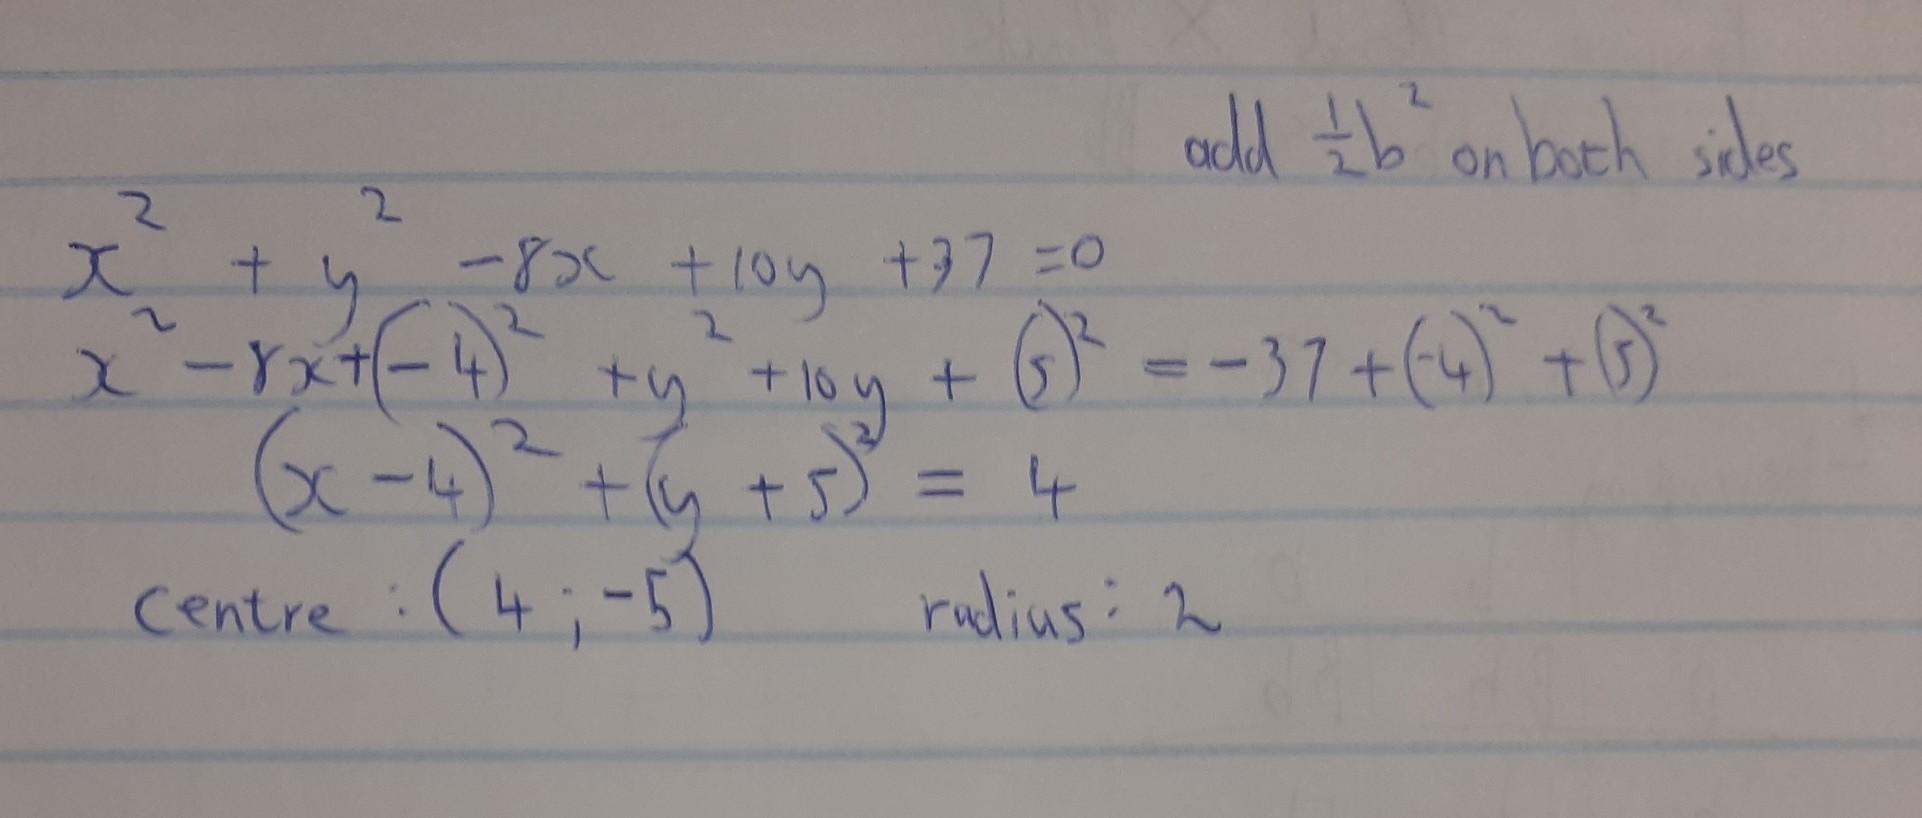 add ½b² on both sides
x² + y² -8x +10y +37 =0
x² -8x+(-4)² +y² +10y + (5)² = -37 +(-4)² +(5)²
(x -4)² +(y +5)² = 4
centre : (4 ; -5) radius: 2